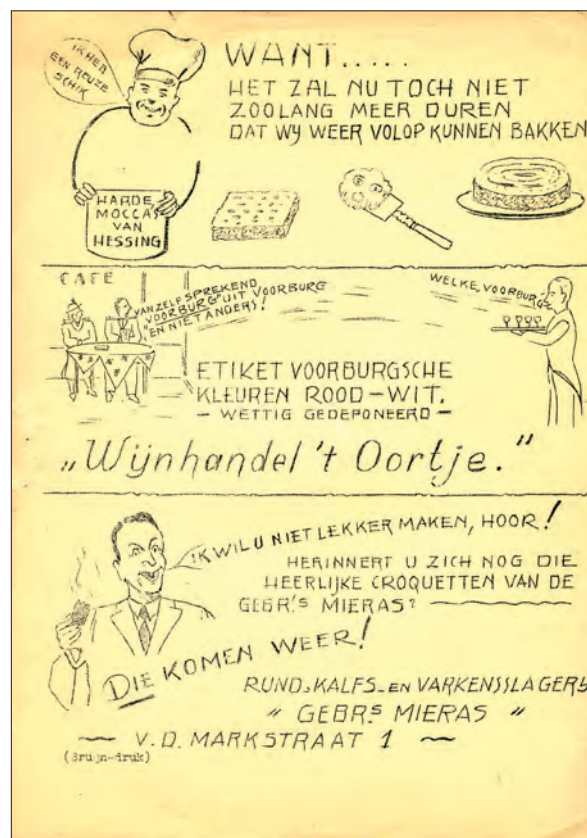 IK HEB
EEN REUZE
SCHIK
WANT.....
HET ZAL NU TOCH NIET
ZOOLANG MEER DUREN
DAT WY WEER VOLOP KUNNEN BAKKEN
HARDE
MOCCA'S
VAN
HESSING
CAFE
VANZELFSPREKEND
"VOORBURG" UIT VOORBURG
EN NIET ANDERS!
WELKE, VOORBURG?
ETIKET VOORBURGSCHE
KLEUREN ROOD-WIT.
- WETTIG GEDEPONEERD -
„Wijnhandel 't Oortje."
IK WIL U NIET LEKKER MAKEN, HOOR!
HERINNERT U ZICH NOG DIE
HEERLIJKE CROQUETTEN VAN DE
GEBR.'S MIERAS?
DIE KOMEN WEER!
RUND-KALFS- EN VARKENSSLAGERY
" GEBR.S MIERAS "
~ V.D. MARKSTRAAT 1 ~
(Bruijn-druk)